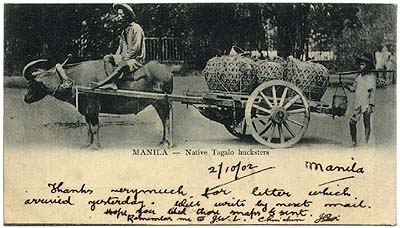 MANILA — Native Tagalo hucksters
2/10/02 Manila
Thanks very much for letter which
arrived yesterday. Will write by next mail.
Hope you liked those maps I sent.
Remember me to